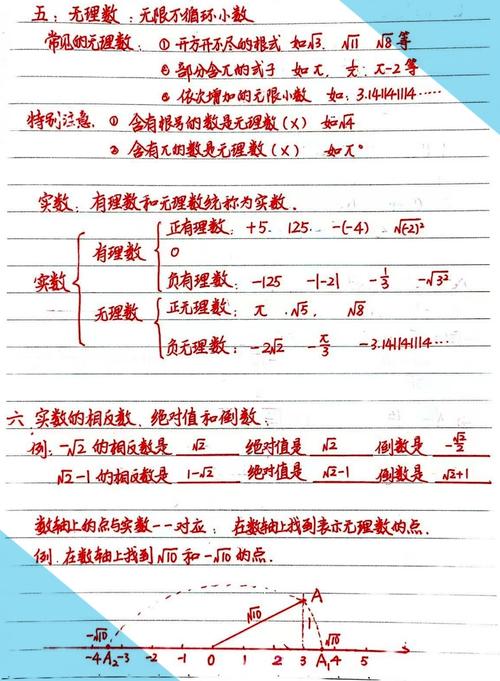 五：无理数：无限不循环小数
常见的无理数：① 开方开不尽的根式 如√3. √11 √8等
② 部分含π的式子 如π, 1/π, π-2等
③ 依次增加的无限小数 如：3.141141114……
特别注意. ① 含有根号的数是无理数(×) 如√4
② 含有π的数是无理数(×) 如π°
实数：有理数和无理数统称为实数.
实数
有理数
正有理数：+5. 125. -(-4) √(-2)²
0
负有理数：-125 -|-2| -1/3 -√3²
无理数
正无理数：π. √5. √8
负无理数：-2√2 -π/3 -3.141141114…
六 实数的相反数、绝对值和倒数.
例. -√2的相反数是 √2 绝对值是 √2 倒数是 -√2/2
√2-1的相反数是 1-√2 绝对值是 √2-1 倒数是 √2+1
数轴上的点与实数一一对应：在数轴上找到表示无理数的点.
例. 在数轴上找到√10和-√10的点.
√10 A
-√10 1 √10
-4 A₂ -3 -2 -1 0 1 2 3 A₁ 4 5